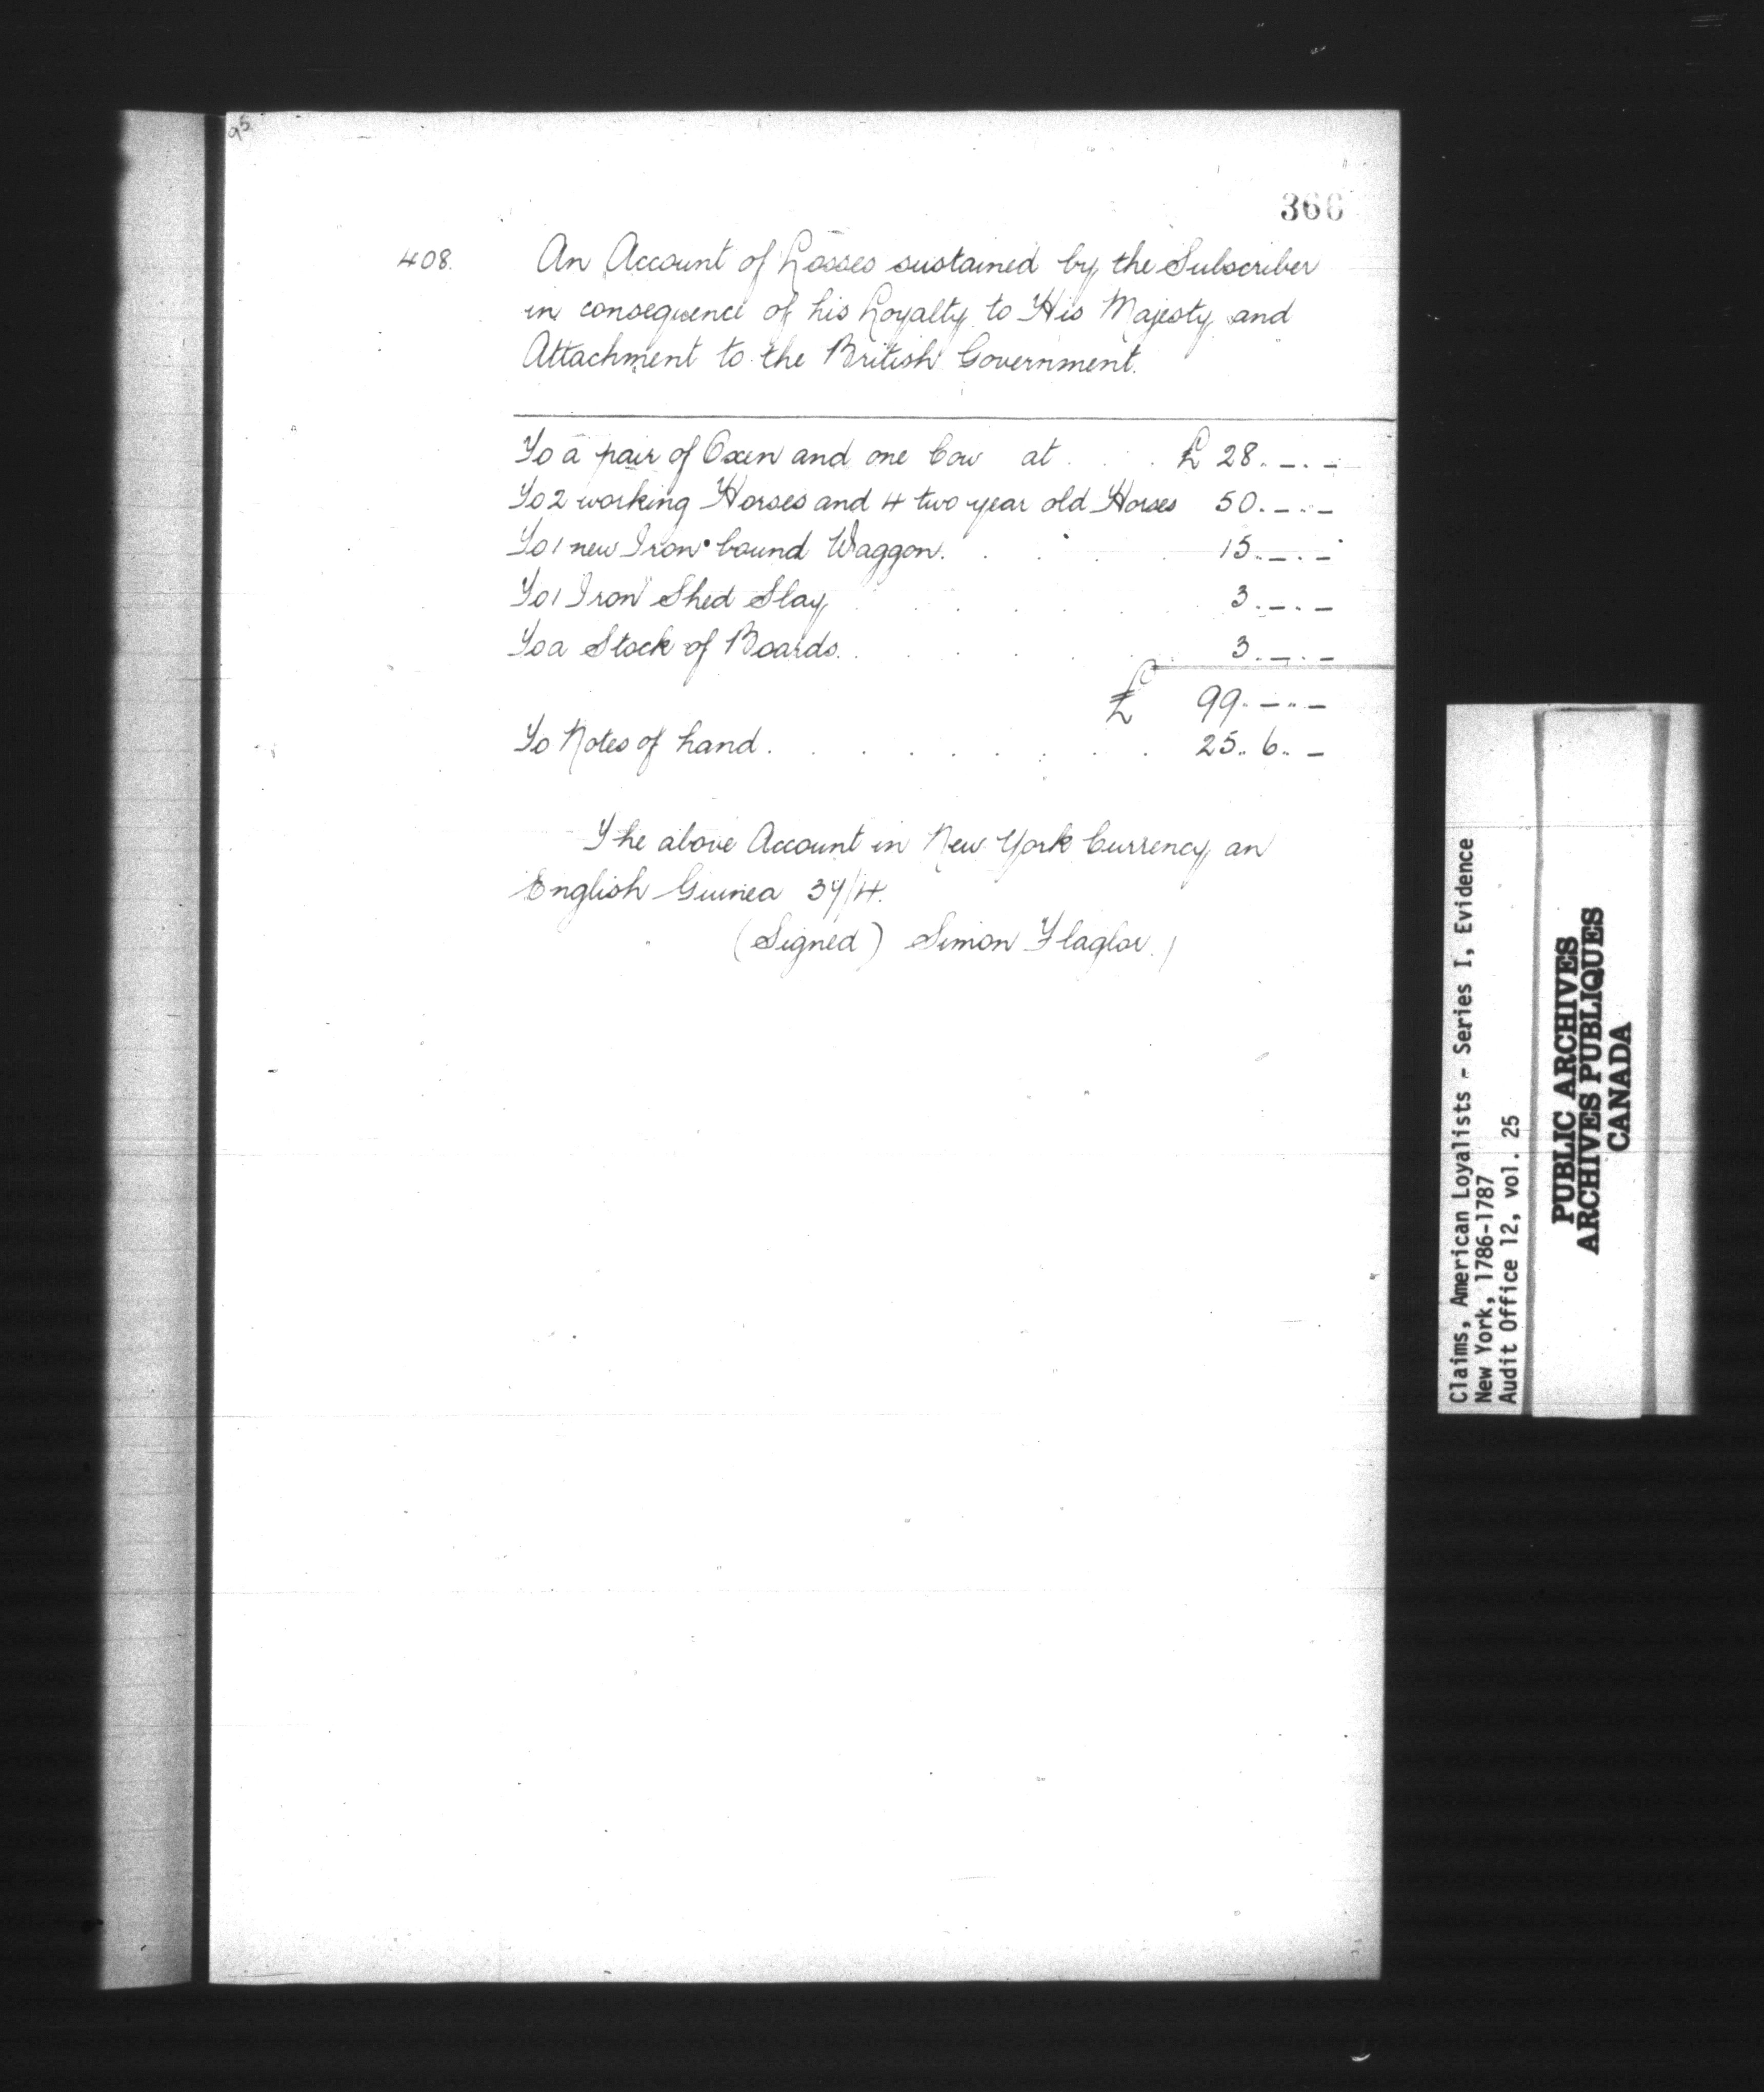 95
366
408. An Account of Losses sustained by the Subscriber
in consequence of his Loyalty to His Majesty and
Attachment to the British Government.
To a pair of Oxen and one Cow at . . . £ 28. _ . _
To 2 working Horses and 4 two year old Horses 50. _ .. _
To 1 new Iron bound Waggon. . . . . 15.. _ . _
To 1 Iron Shed Slay . . . . . 3. _ . _
To a Stock of Boards. . . . . . 3. _ . _
£ 99. _ .. _
To Notes of hand . . . . . . . . 25.. 6.. _
The above Account in New York Currency an
English Guinea 37/4.
(Signed) Simon Flaglor.
Claims, American Loyalists - Series I, Evidence
New York, 1786-1787
Audit Office 12, vol. 25
PUBLIC ARCHIVES
ARCHIVES PUBLIQUES
CANADA